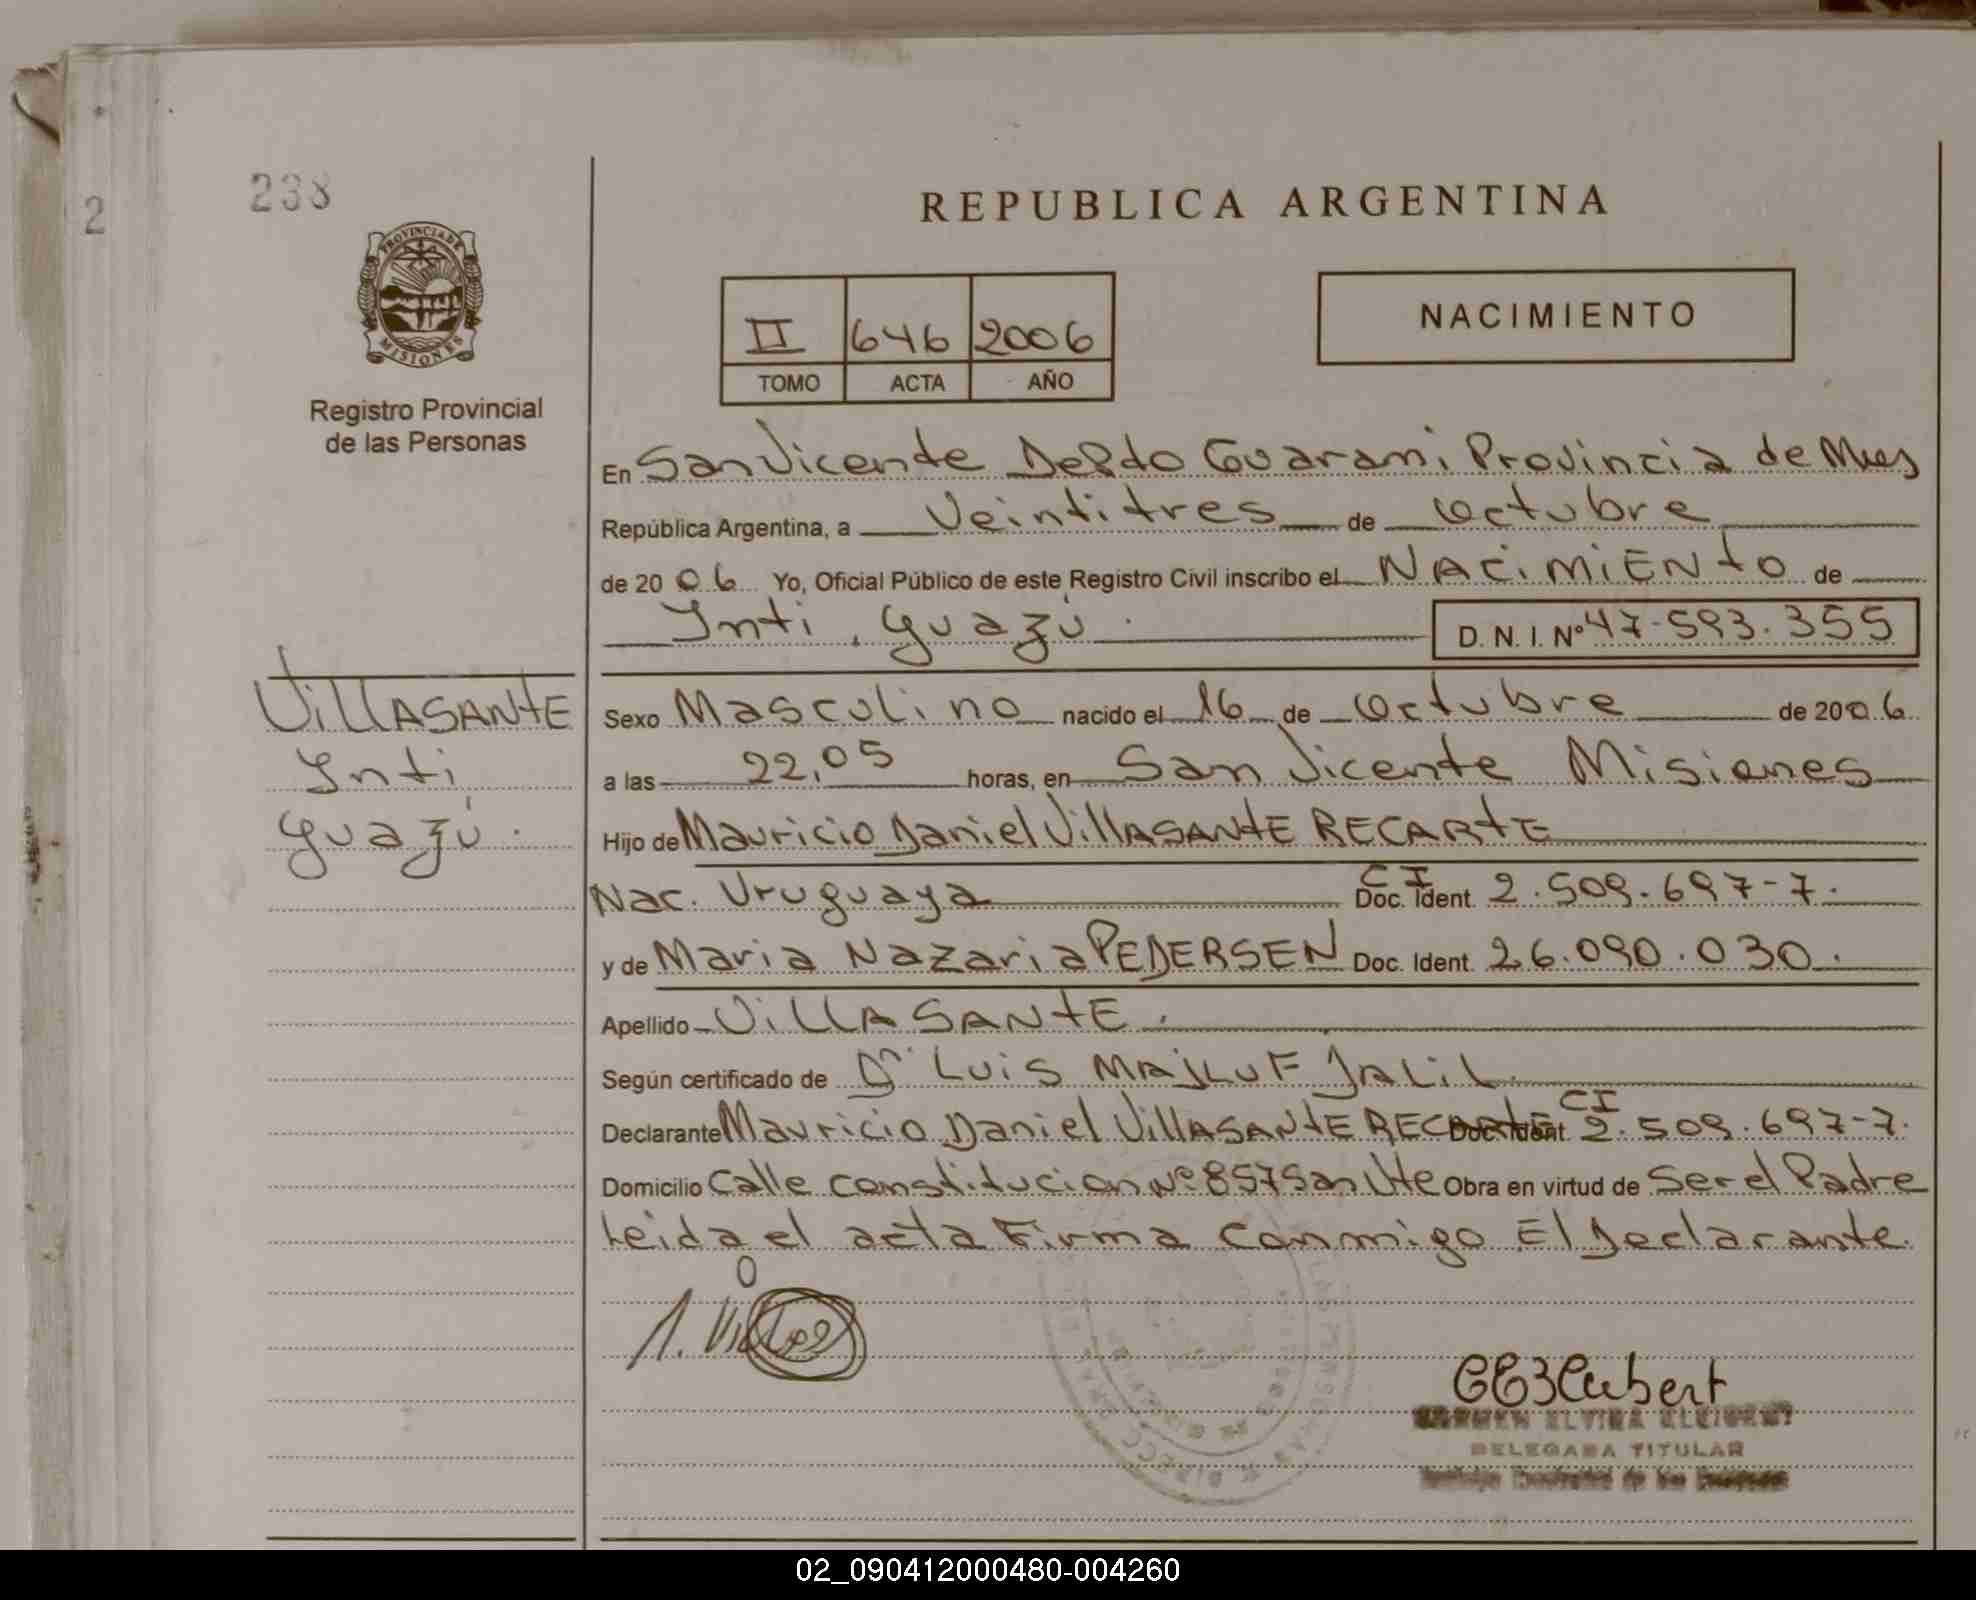 2
238
PROVINCIA DE
MISIONES
Registro Provincial
de las Personas
REPUBLICA ARGENTINA
II 646 2006
TOMO ACTA AÑO
NACIMIENTO
En San Vicente Depdto Guarani Provincia de Mnes
República Argentina, a Veintitres de octubre
de 20 06 Yo, Oficial Público de este Registro Civil inscribo el NACIMIENTO de
Inti Guazú.
D. N. I. Nº 47.593.355
VILLASANTE
Inti
Guazú.
Sexo Masculino nacido el 16 de octubre de 2006
a las 22,05 horas, en San Vicente Misiones
Hijo de Mauricio Daniel VILLASANTE RECARTE
Nac. Uruguaya CI Doc. Ident. 2.509.697-7.
y de Maria Nazaria PEDERSEN Doc. Ident. 26.090.030.
Apellido VILLASANTE.
Según certificado de Dr LUIS MAJLUF JALIL.
Declarante Mauricio Daniel VILLASANTE RECARTE Doc. Ident. CI 2.509.697-7.
Domicilio Calle constitucion Nº 857 San Vte Obra en virtud de Ser el Padre
Leida el acta Firma conmigo El Declarante.
DELEGADA TITULAR
02_090412000480-004260